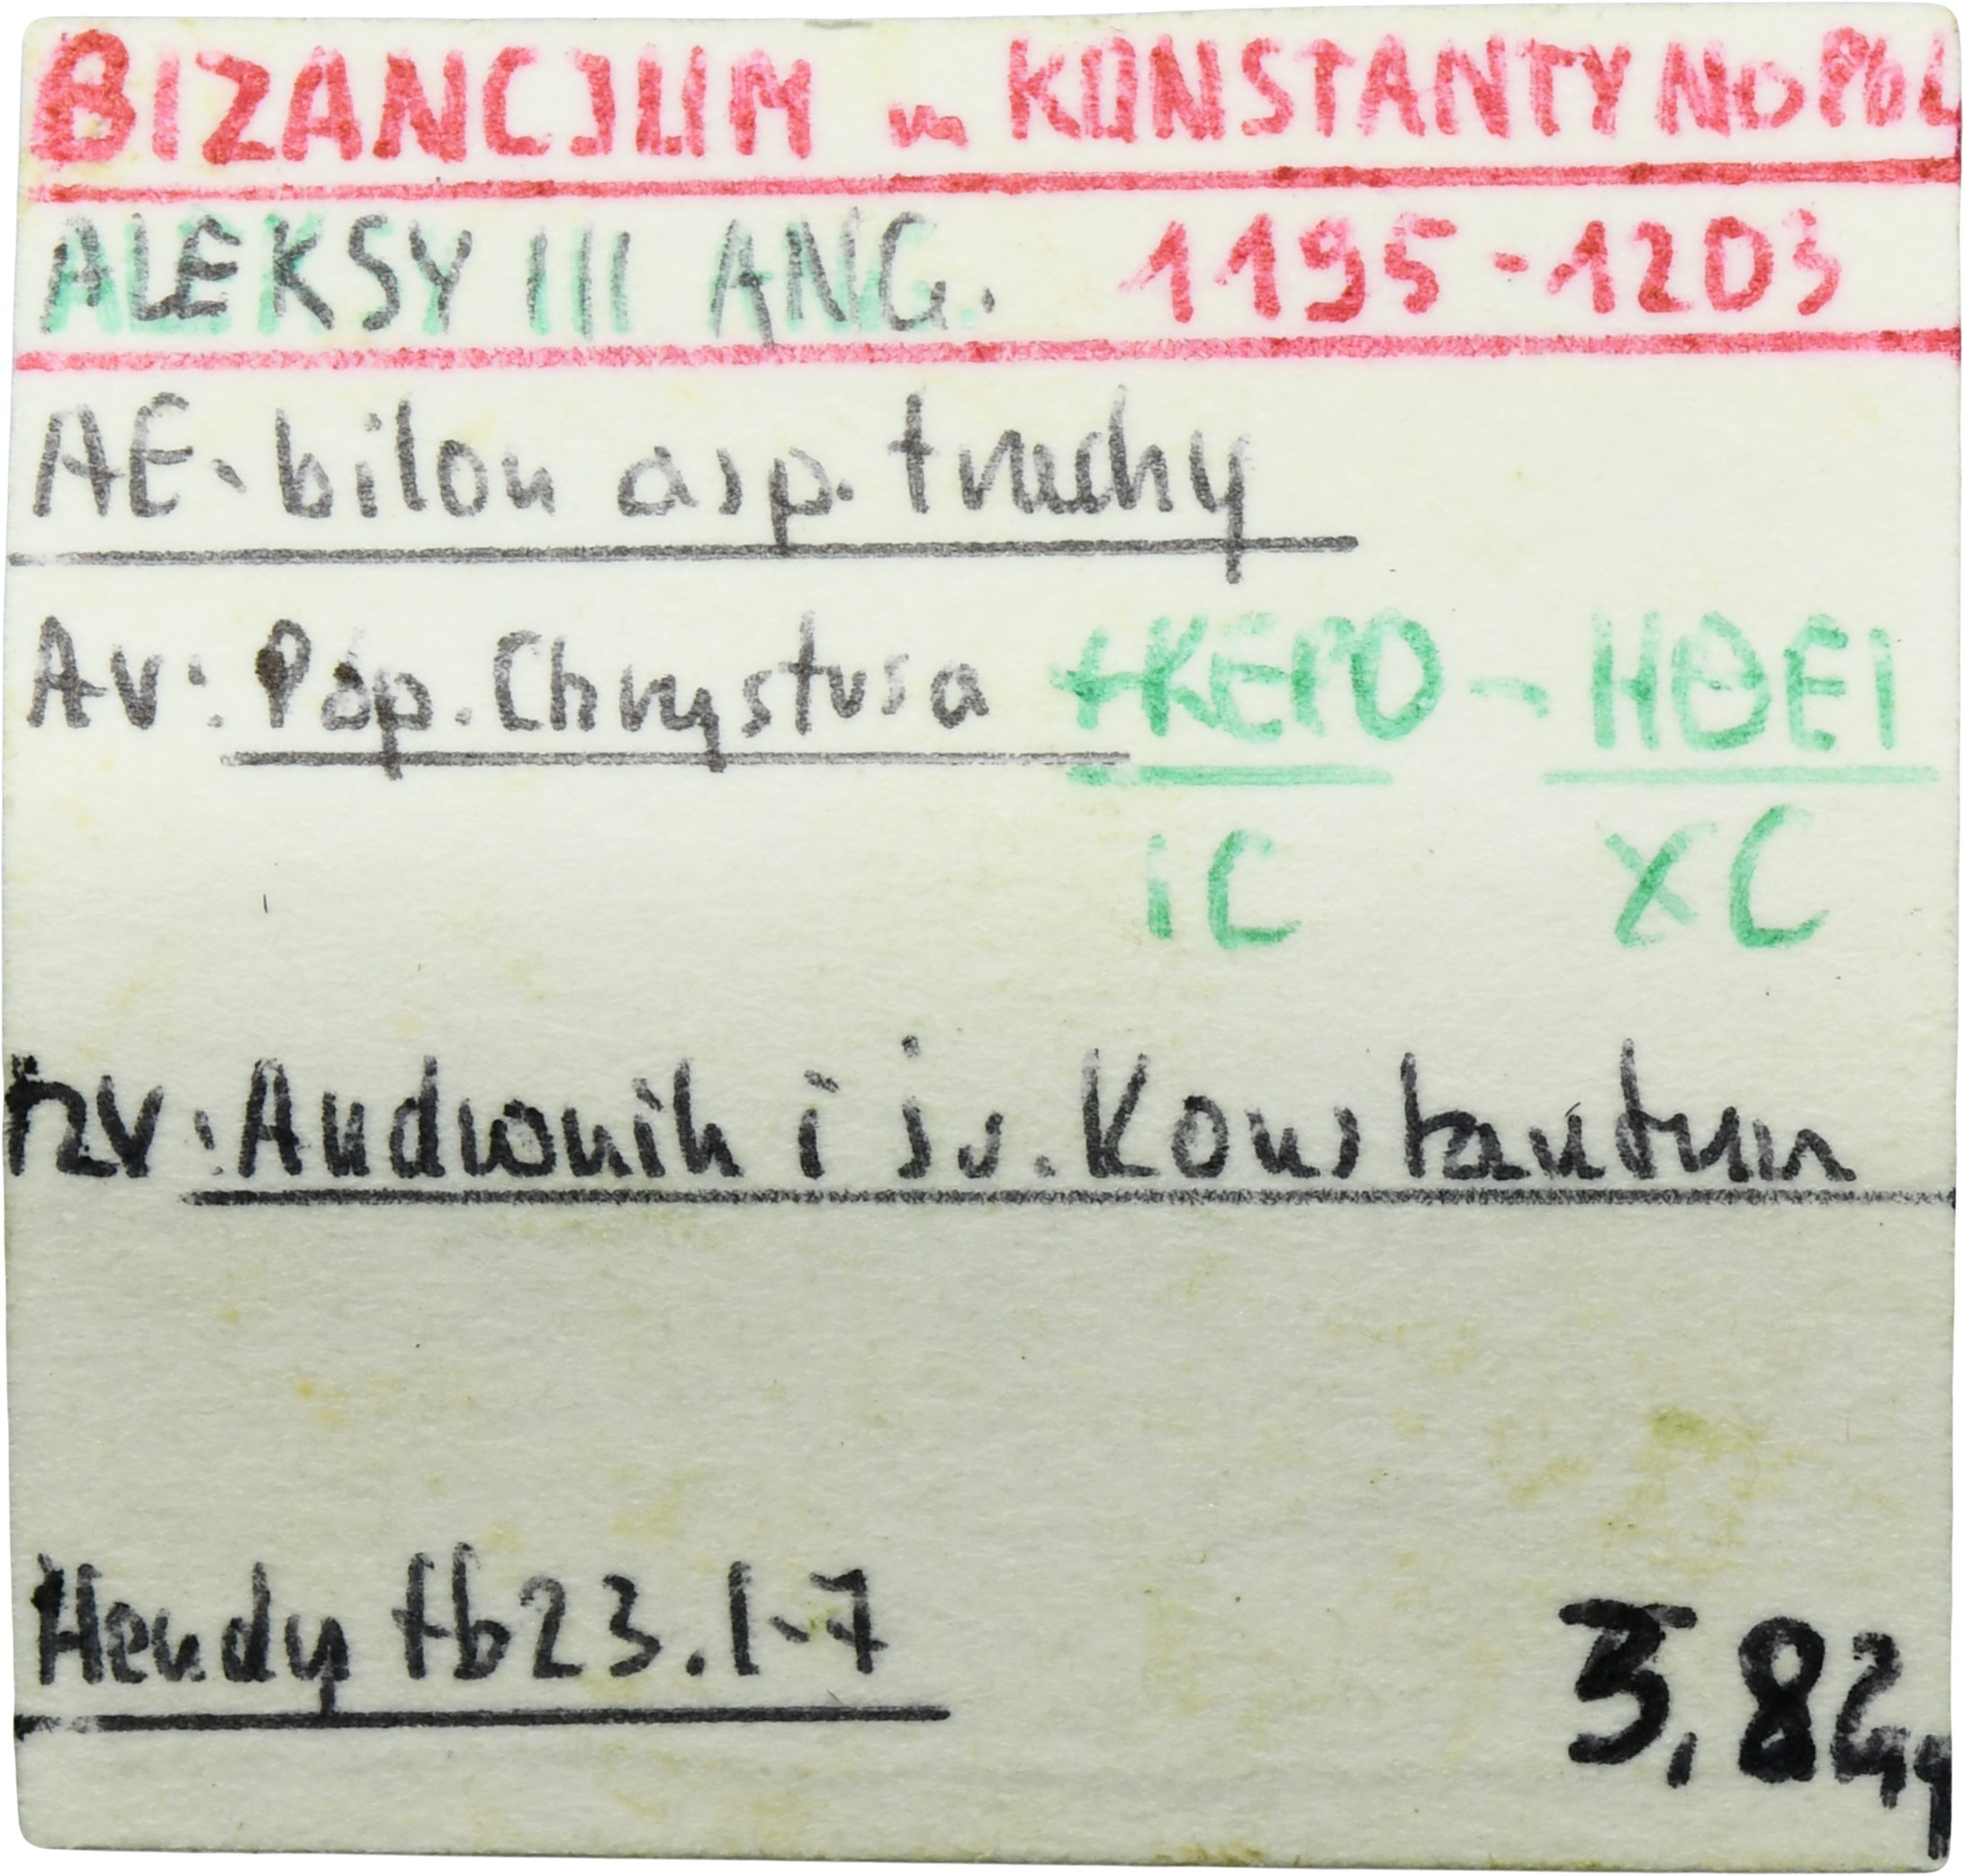 BIZANCJUM m. KONSTANTYNOPOL
ALEKSY III ANG. 1195-1203
AE-bilon asp. trachy
AV: Pop. Chrystusa +KEPO - HΘEI
IC XC
RV: Andronik i św. Konstantyn
Hendy tb23.1-7 3,82g